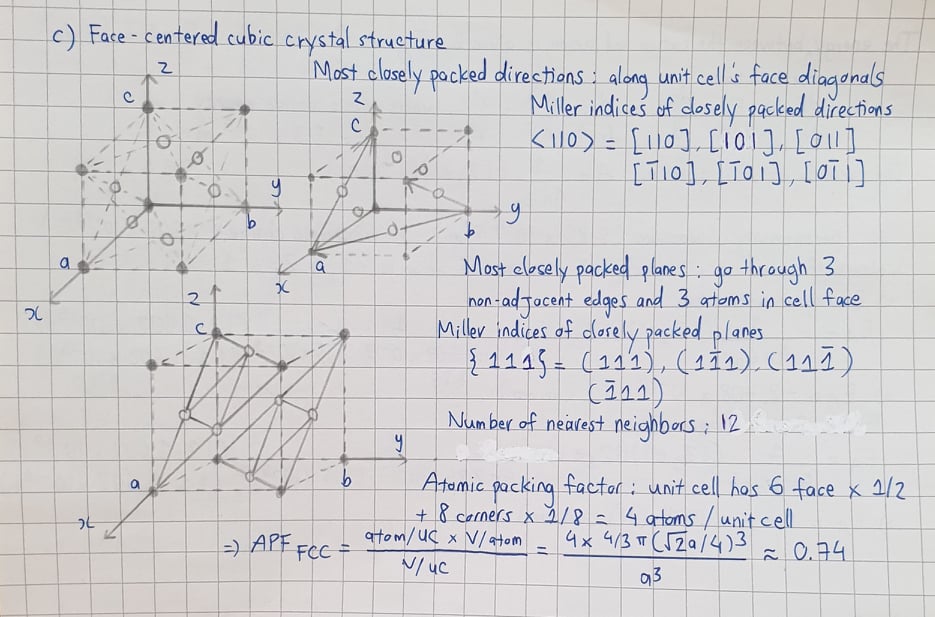 c) Face-centered cubic crystal structure
Most closely packed directions: along unit cell's face diagonals
Miller indices of closely packed directions
<110> = [110], [101], [011]
[1̄10], [1̄01], [01̄1]
z
c
y
b
a
x
z
c
y
b
a
x
Most closely packed planes: go through 3
non-adjacent edges and 3 atoms in cell face
Miller indices of closely packed planes
{111} = (111), (11̄1), (111̄)
(1̄11)
Number of nearest neighbors: 12
z
c
y
b
a
x
Atomic packing factor: unit cell has 6 face x 1/2
+ 8 corners x 1/8 = 4 atoms/unit cell
=> APF FCC = atom/UC x V/atom / V/UC = 4 x 4/3 π (√2a/4)³ / a³ ≈ 0.74